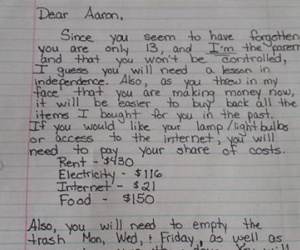 Dear Aaron,
Since you seem to have forgotten
you are only 13, and I'm the parent
and that you won't be controlled,
I guess you will need a lesson in
independence. Also, as you threw in my
face that you are making money now,
it will be easier to buy back all the
items I bought for you in the past.
If you would like your lamp/lightbulbs
or access to the internet, you will
need to pay your share of costs.
Rent - $430
Electricity - $116
Internet - $21
Food - $150
Also, you will need to empty the
trash Mon, Wed, & Friday, as well as